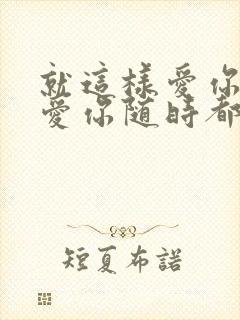 就這樣愛你
愛你隨時都
短夏布諾